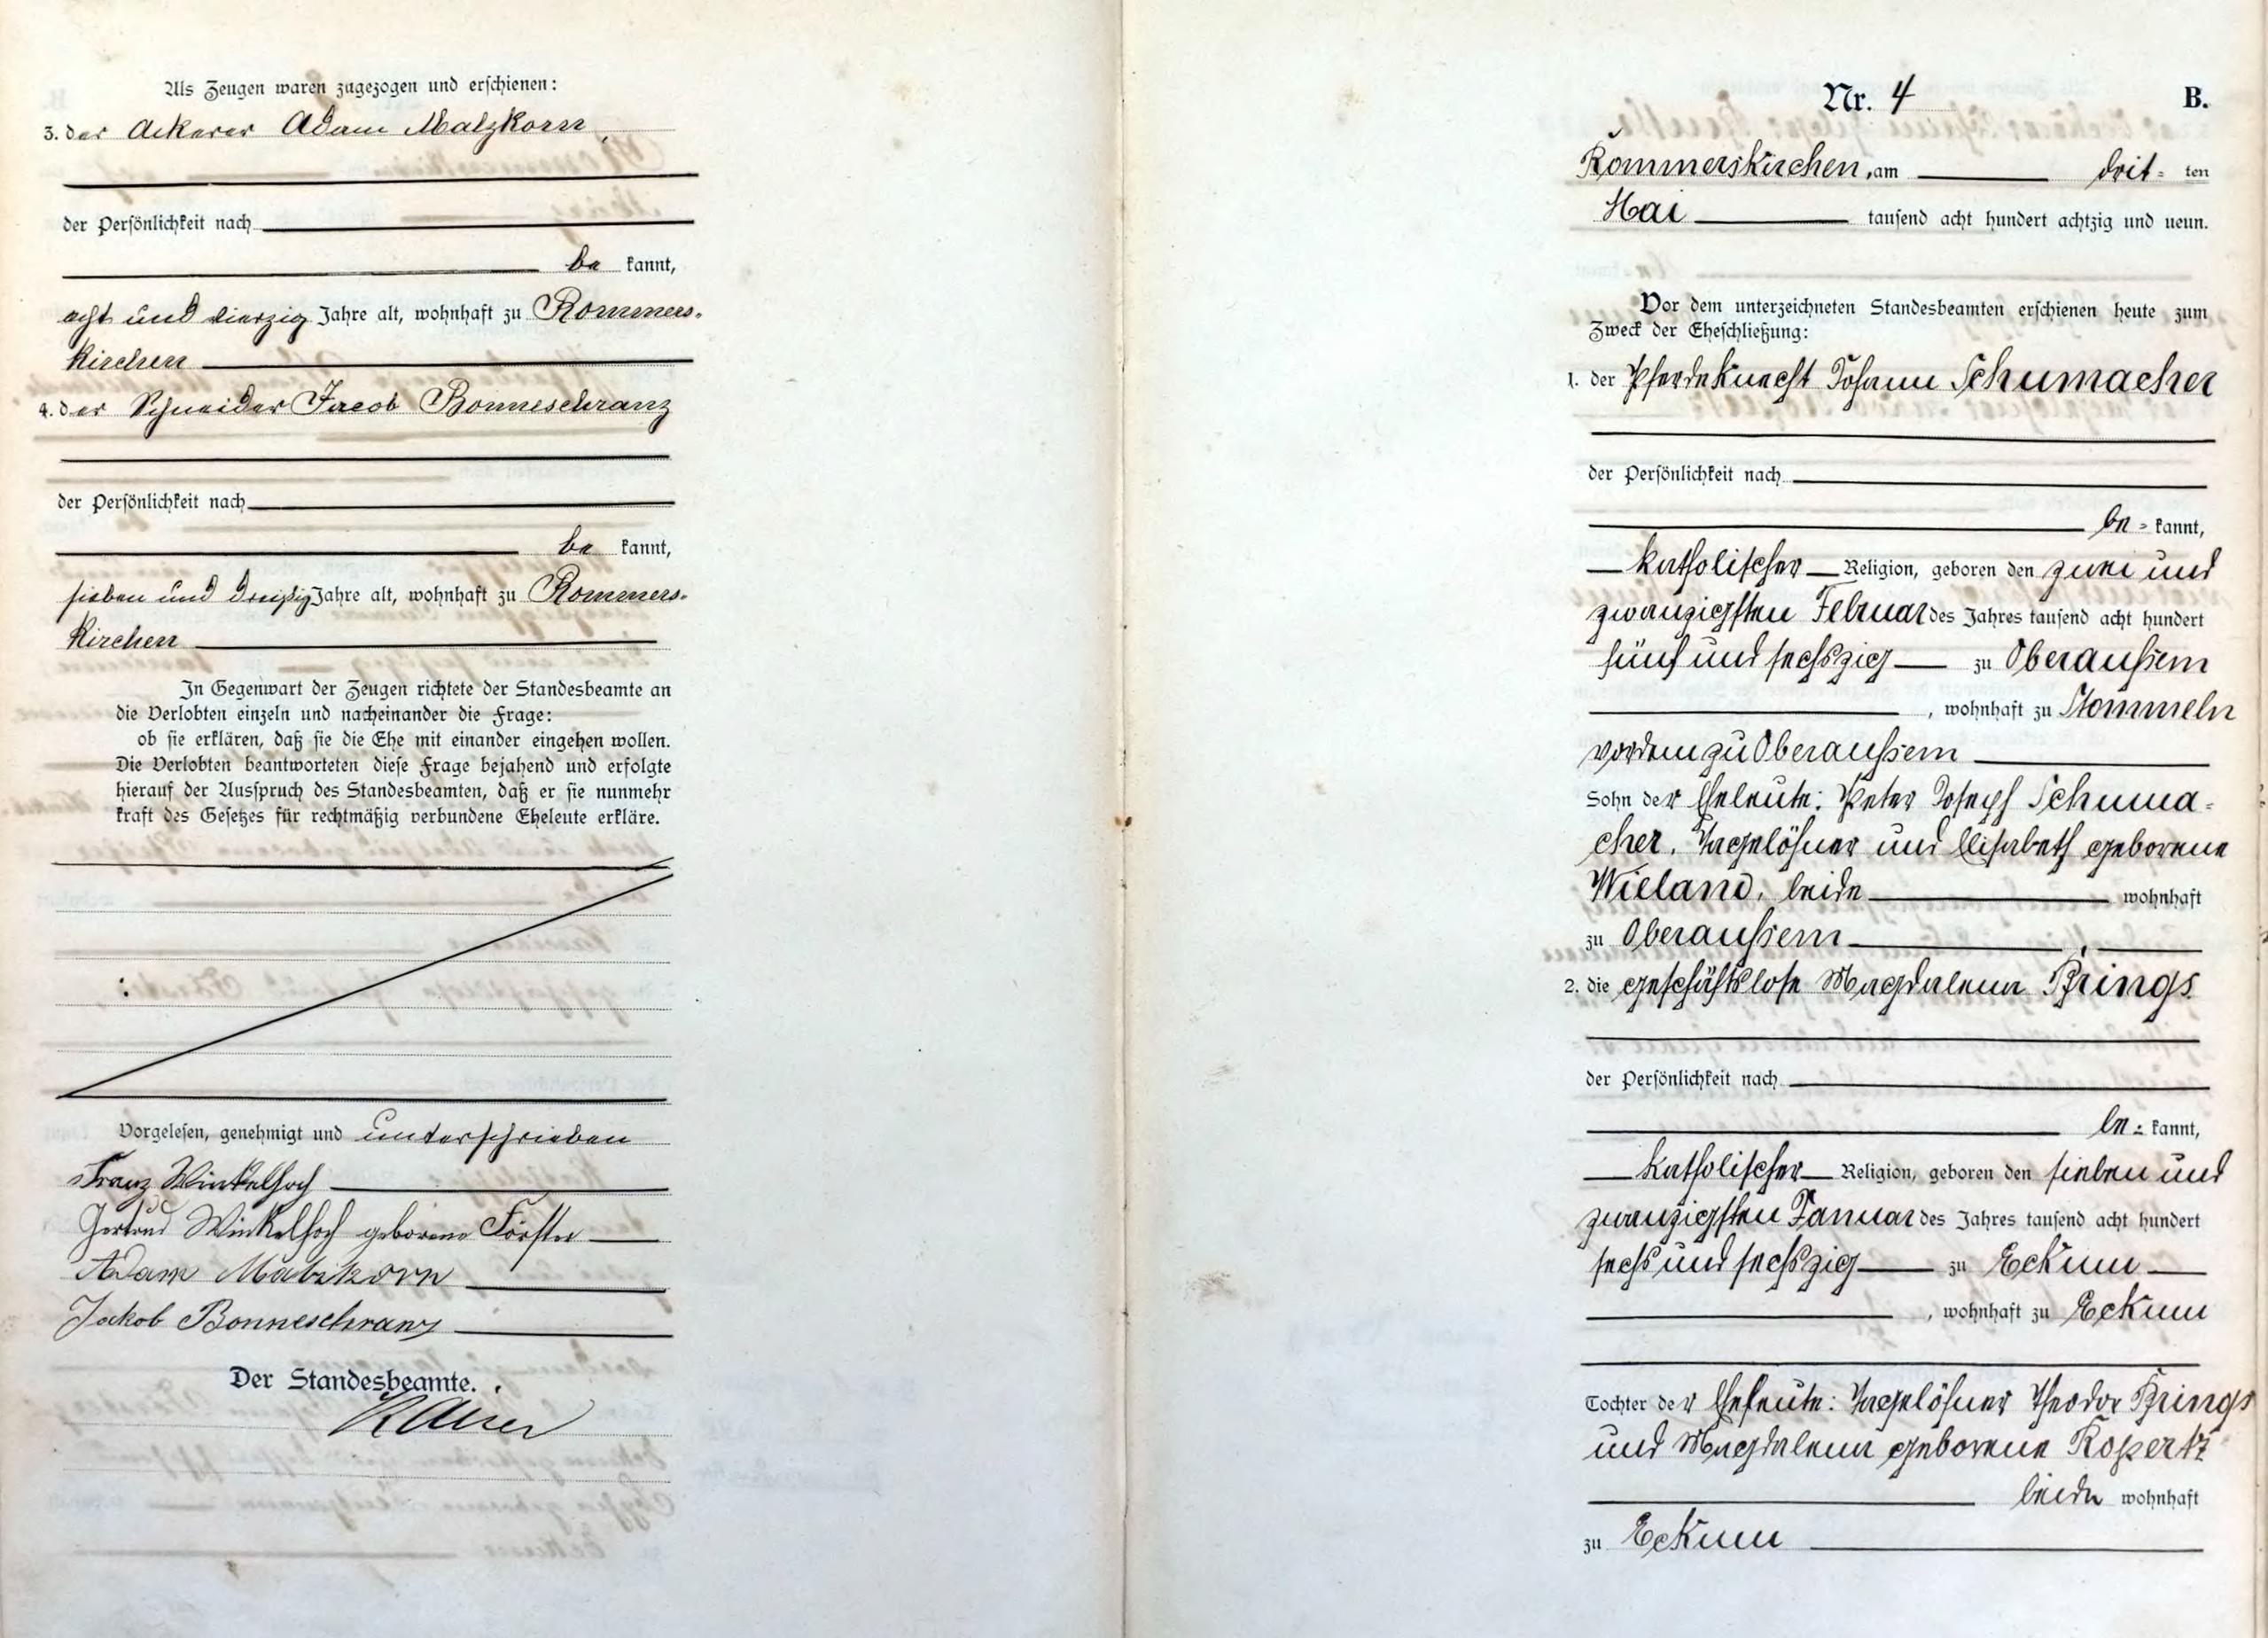 Als Zeugen waren zugezogen und erschienen:
3. der Ackerer Adam Matzkorn,
der Persönlichkeit nach
be kannt,
acht und vierzig Jahre alt, wohnhaft zu Rommers-
kirchen
4. der Schneider Jacob Bonneschranz
der Persönlichkeit nach
be kannt,
sieben und dreißig Jahre alt, wohnhaft zu Rommers-
kirchen
In Gegenwart der Zeugen richtete der Standesbeamte an
die Verlobten einzeln und nacheinander die Frage:
ob sie erklären, daß sie die Ehe mit einander eingehen wollen.
Die Verlobten beantworteten diese Frage bejahend und erfolgte
hierauf der Ausspruch des Standesbeamten, daß er sie nunmehr
kraft des Gesetzes für rechtmäßig verbundene Eheleute erkläre.
Vorgelesen, genehmigt und unterschrieben
Franz Winkelhoch
Gertrud Winkelhoch geborene Förster
Adam Matzkorn
Jakob Bonneschranz
Der Standesbeamte.
Nr. 4 B.
Rommerskirchen, am drit= ten
Mai tausend acht hundert achtzig und neun.
Vor dem unterzeichneten Standesbeamten erschienen heute zum
Zweck der Eheschließung:
1. der Pferdeknecht Johann Schumacher
der Persönlichkeit nach
be= kannt,
katholischer Religion, geboren den zwei und
zwanzigsten Februar des Jahres tausend acht hundert
fünf und sechszig zu Oberaußem
, wohnhaft zu Stommeln
vordem zu Oberaußem
Sohn der Eheleute: Peter Joseph Schuma=
cher, Tagelöhner und Elisabeth geborene
Wieland, beide wohnhaft
zu Oberaußem
2. die geschäftslose Magdalena Brings
der Persönlichkeit nach
be= kannt,
katholischer Religion, geboren den sieben und
zwanzigsten Januar des Jahres tausend acht hundert
sechs und sechszig zu Eckum
, wohnhaft zu Eckum
Tochter der Eheleute: Tagelöhner Theodor Brings
und Magdalena geborene Kopertz
beide wohnhaft
zu Eckum